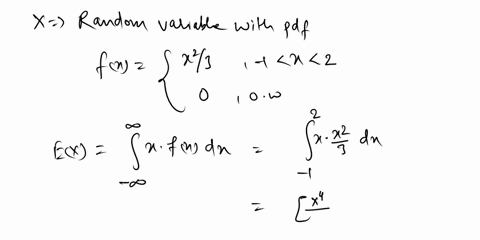 X => Random variable with pdf
f(x) = { x²/3 , -1 < x < 2
0 , o.w
E(x) = ∫_{-∞}^{∞} x · f(x) dx = ∫_{-1}^{2} x · x²/3 dx
= [x⁴